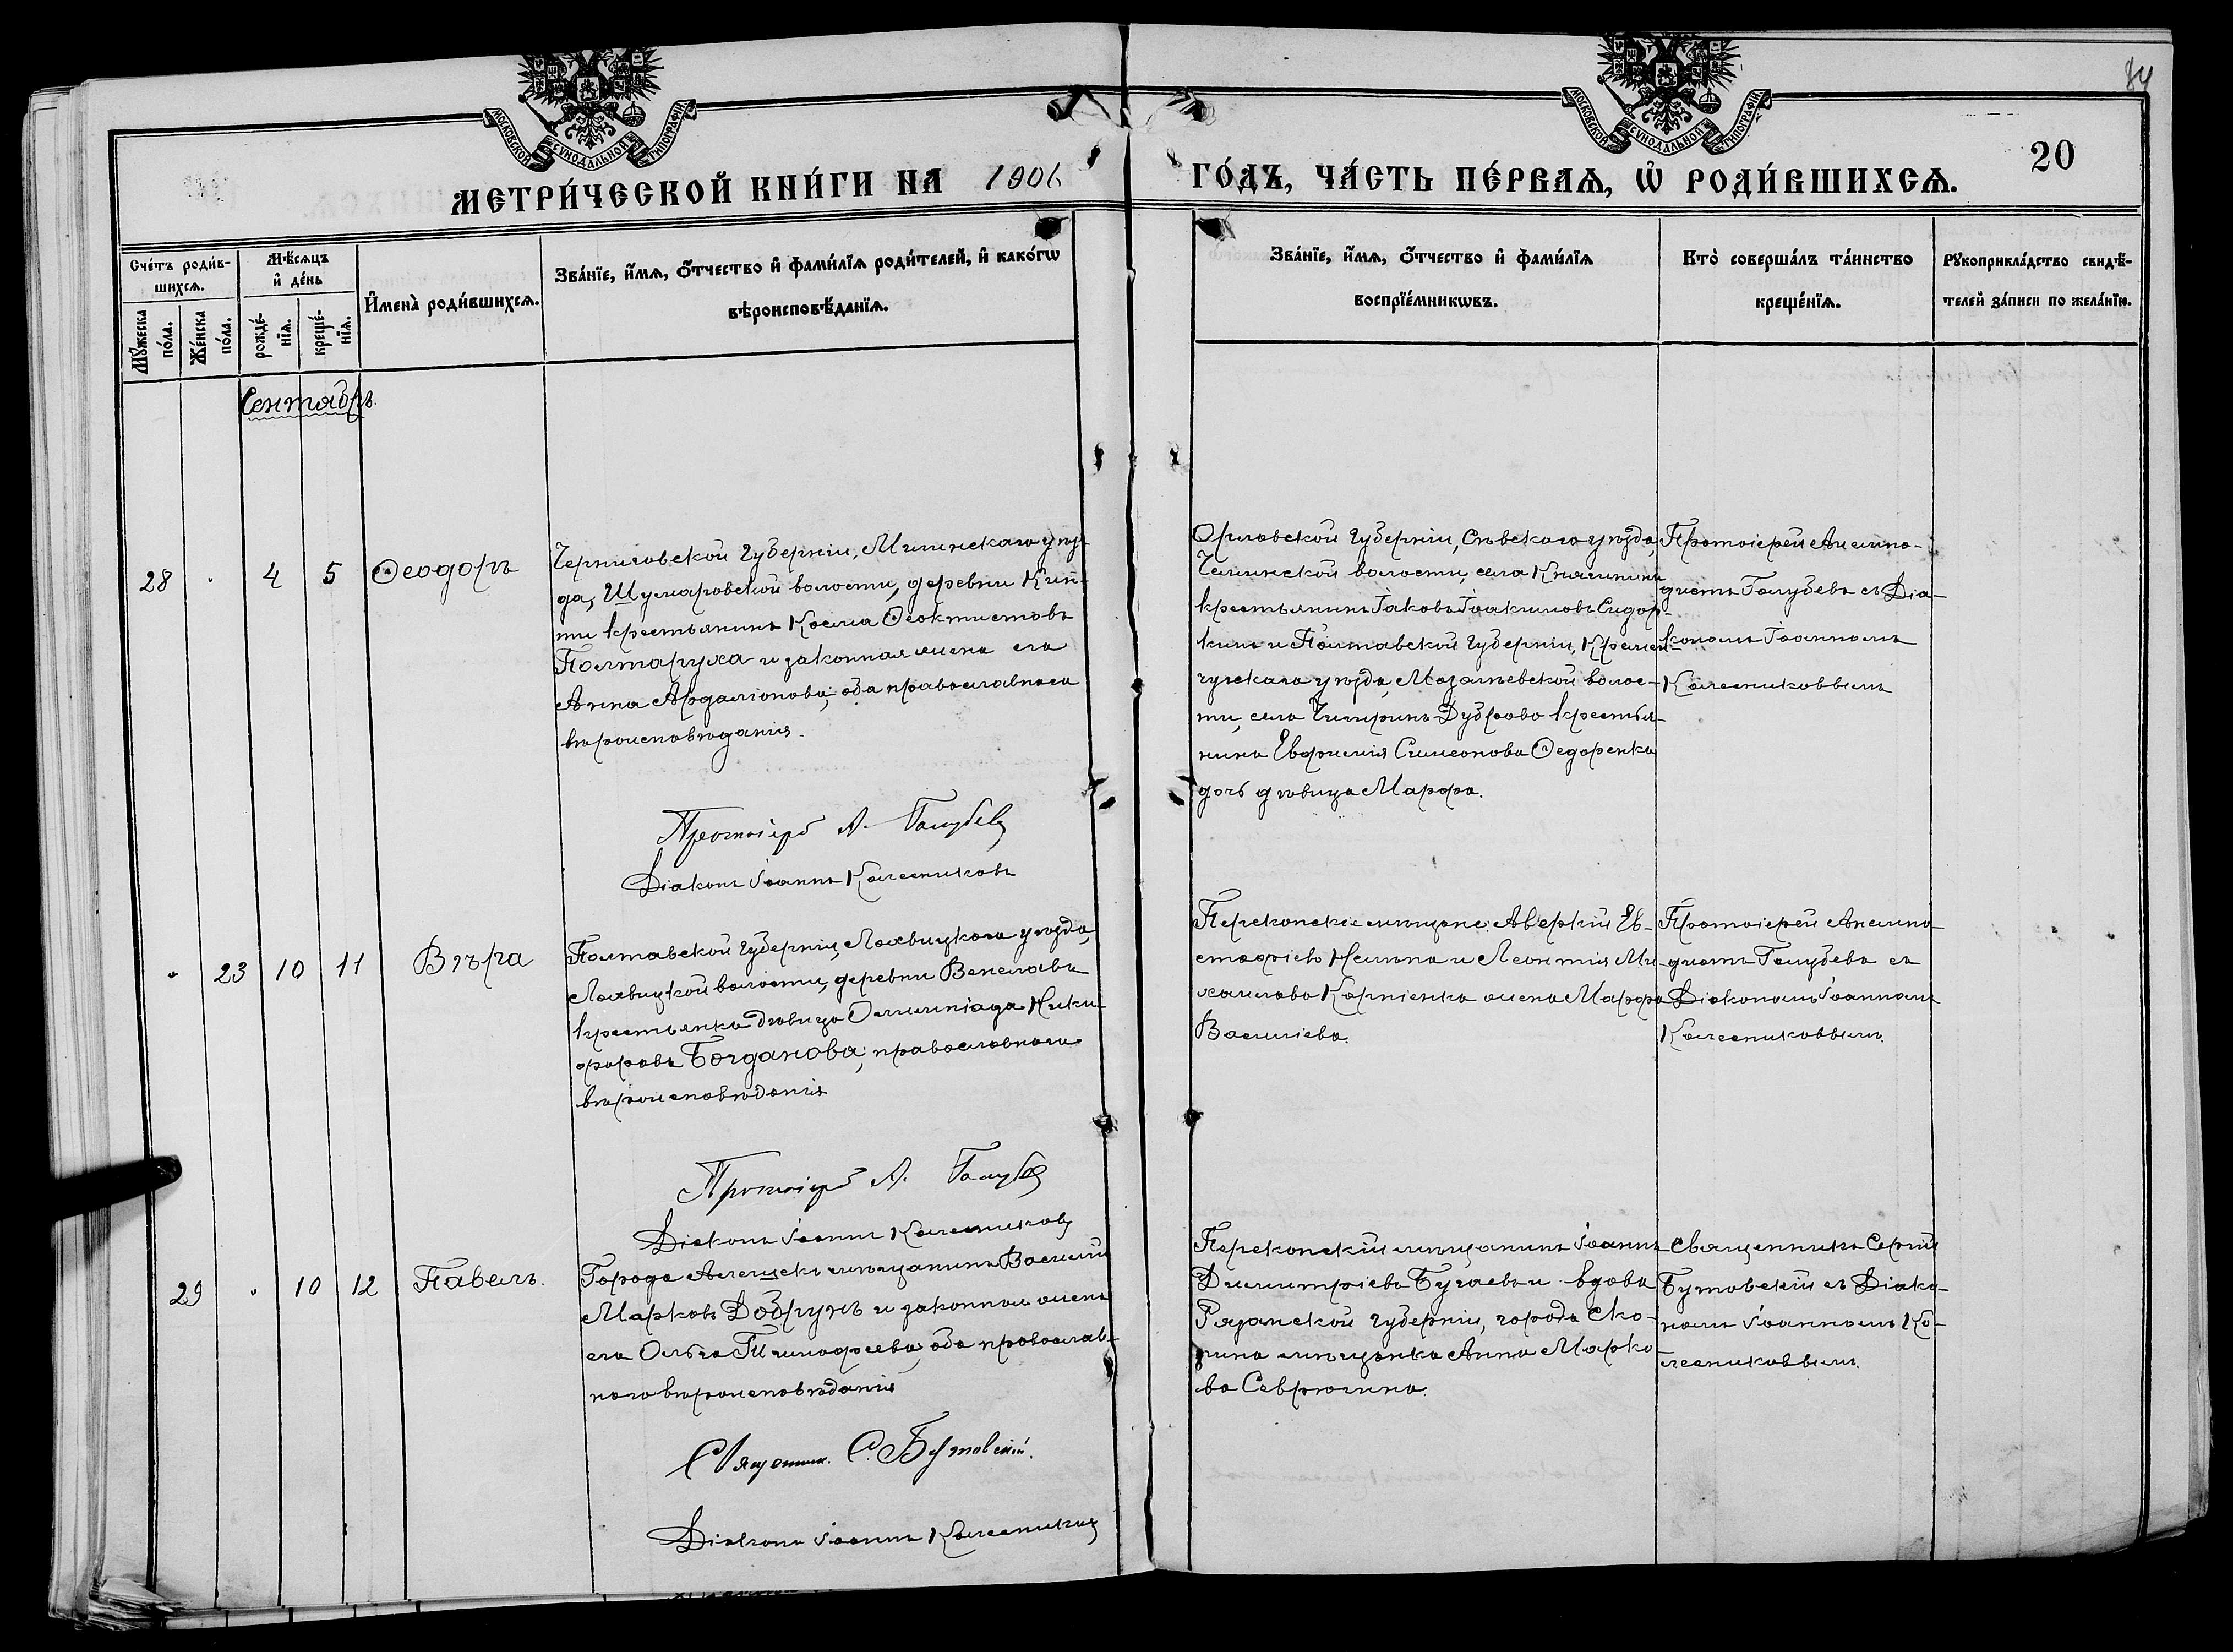 84
МОСКОВСКОЙ СУНОДАЛЬНОЙ ТИПОГРАФІИ
МОСКОВСКОЙ СУНОДАЛЬНОЙ ТИПОГРАФІИ
20
МЕТРИ́ЧЕСКОЙ КНИ́ГИ НА 1906 ГО́ДЪ, ЧА́СТЬ ПЕ́РВАѦ, Ѡ РОДИ́ВШИХСѦ.
Сче́тъ роди́в-
шихсѧ.
Мꙋ́жеска
по́ла.
Же́нска
по́ла.
Мѣ́сѧцъ
и҆ де́нь
рожде́-
нїѧ.
креще́-
нїѧ.
И҆мена̀ роди́вшихсѧ.
Зва́нїе, и҆́мѧ, ѻ҆́тчество и҆ фами́лїѧ роди́телей, и҆ како́гѡ
вѣроисповѣ́данїѧ.
Зва́нїе, и҆́мѧ, ѻ҆́тчество и҆ фами́лїѧ
воспрїе́мникѡвъ.
Кто̀ соверша́лъ та́инство
креще́нїѧ.
Рꙋкоприкла́дство свидѣ́-
телей за́писи по жела́нїю.
Сентябрь.
28
4
5
Ѳеодоръ
Черниговской губерніи, Мглинскаго уѣз-
да, Шумаровской волости, деревни Кип-
ти крестьянинъ Косма Ѳеоктистовъ
Полтаруха и законная жена его
Анна Ардаліонова; оба православнаго
вѣроисповѣданія.
Протоіерей А. Голубевъ
Діаконъ Іоаннъ Колесниковъ
Орловской губерніи, Сѣвскаго уѣзда
Челинской волости, села Княгинина
крестьянинъ Іаковъ Іоакимовъ Сидор-
кинъ и Полтавской губерніи, Кремен-
чугскаго уѣзда, Мозалѣевской волос-
ти, села Чигринъ-Дуброво крестья-
нина Евфимія Симеонова Ѳедоренка
дочь дѣвица Марфа.
Протоіерей Анемпо-
дистъ Голубевъ съ Діа-
кономъ Іоанномъ
Колесниковымъ
23
10
11
Вѣра
Полтавской губерніи, Лохвицкаго уѣзда,
Лохвицкой волости, деревни Венславъ
крестьянка дѣвица Олимпіада Ники-
форова Богданова; православнаго
вѣроисповѣданія
Протоіерей А. Голубевъ
Діаконъ Іоаннъ Колесниковъ
Перекопскіе мѣщане: Аверкій Ев-
стафіевъ и Леонтія Ми-
хаилова Корніенка жена Марфа
Василіева.
Протоіерей Анемпо-
дистъ Голубевъ съ
Діакономъ Іоанномъ
Колесниковымъ.
29
10
12
Павелъ.
Города Алешекъ мѣщанинъ Василій
Марковъ Добрунъ и законная жена
его Ольга Тимофеева, оба православ-
наго вѣроисповѣданія
Священник. С. Бутовскій.
Діаконъ Іоаннъ Колесниковъ
Перекопскій мѣщанинъ Іоаннъ
Димитріевъ Бугаевъ и вдова
Рязанской губерніи, города Ско-
пина мѣщанка Анна Марко-
ва Севрюгина.
Священникъ Сергій
Бутовскій съ Діако-
номъ Іоанномъ Ко-
лесниковымъ.